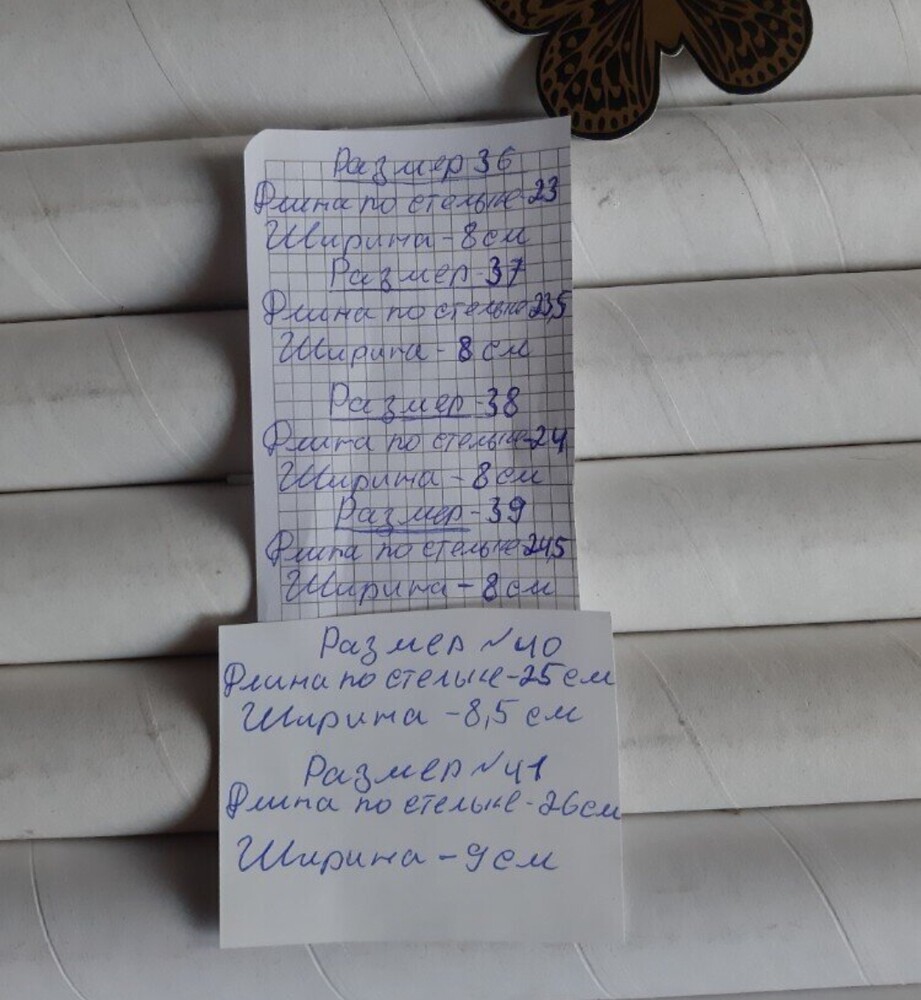 Размер 36
Длина по стельке-23
Ширина - 8 см
Размер-37
Длина по стельке-23,5
Ширина - 8 см
Размер-38
Длина по стельке-24
Ширина - 8 см
Размер-39
Длина по стельке-24,5
Ширина - 8 см
Размер №40
Длина по стельке-25 см
Ширина - 8,5 см
Размер №41
Длина по стельке-26 см
Ширина - 9 см